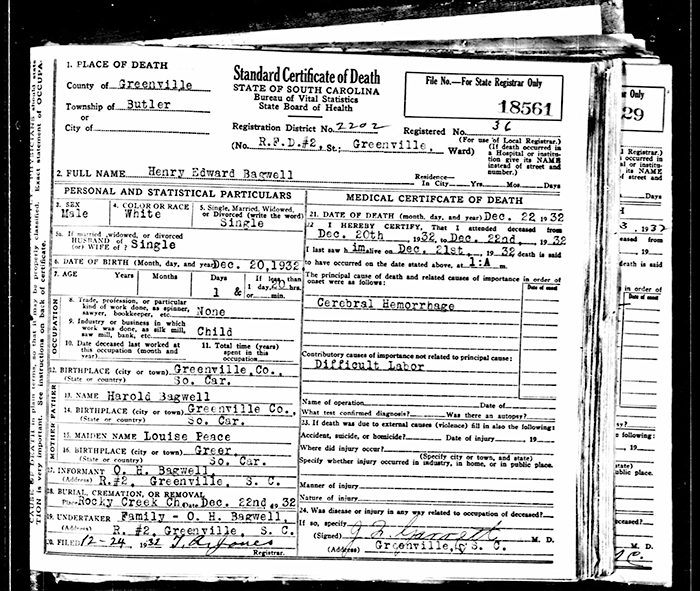 1. PLACE OF DEATH
County of Greenville
Township of Butler
or
City of
Standard Certificate of Death
STATE OF SOUTH CAROLINA
Bureau of Vital Statistics
State Board of Health
File No.—For State Registrar Only
18561
Registration District No. 2202
Registered No. 36
(For use of Local Registrar.)
(No. R.F.D.#2, St; Greenville, Ward)
(If death occurred in a Hospital or institution give its NAME instead of street and number.)
2. FULL NAME Henry Edward Bagwell
Residence—
In City Yrs. Mos. Days
PERSONAL AND STATISTICAL PARTICULARS
3. SEX
Male
4. COLOR OR RACE
White
5. Single, Married, Widowed, or Divorced (write the word)
Single
5a. If married, widowed, or divorced
HUSBAND of
(or) WIFE of Single
6. DATE OF BIRTH (Month, day, and year) Dec. 20, 1932.
7. AGE Years Months Days
1 &
If less than
1 day, hrs.
or min.
OCCUPATION
8. Trade, profession, or particular kind of work done, as spinner, sawyer, bookkeeper, etc. None
9. Industry or business in which work was done, as silk mill, saw mill, bank, etc. Child
10. Date deceased last worked at this occupation (month and year)
11. Total time (years) spent in this occupation
12. BIRTHPLACE (city or town) Greenville, Co.,
(State or country) So. Car.
FATHER
13. NAME Harold Bagwell
14. BIRTHPLACE (city or town) Greenville Co.,
(State or country) So. Car.
MOTHER
15. MAIDEN NAME Louise Peace
16. BIRTHPLACE (city or town) Greer
(State or country) So. Car.
17. INFORMANT O. H. Bagwell
(Address) R.#2, Greenville, S. C.
18. BURIAL, CREMATION, OR REMOVAL
Place Rocky Creek Ch, Date Dec. 22nd, 1932
19. UNDERTAKER Family - O. H. Bagwell,
(Address) R. #2, Greenville, S. C.
20. FILED 12-24 1932 T. A. Jones
Registrar.
MEDICAL CERTIFICATE OF DEATH
21. DATE OF DEATH (month, day, and year) Dec. 22 1932
22 I HEREBY CERTIFY, That I attended deceased from
Dec. 20th, 1932, to Dec. 22nd, 1932
I last saw him alive on Dec. 21st, 1932 death is said
to have occurred on the date stated above, at 1:A m.
The principal cause of death and related causes of importance in order of onset were as follows:
Date of onset
Cerebral Hemorrhage
Contributory causes of importance not related to principal cause:
Difficult Labor
Name of operation Date of
What test confirmed diagnosis? Was there an autopsy?
23. If death was due to external causes (violence) fill in also the following:
Accident, suicide, or homicide? Date of injury 19
Where did injury occur?
(Specify city or town, and state)
Specify whether injury occurred in industry, in home, or in public place.
Manner of injury
Nature of injury
24. Was disease or injury in any way related to occupation of deceased?
If so, specify
(Signed) M. D.
(Address) Greenville, S. C.